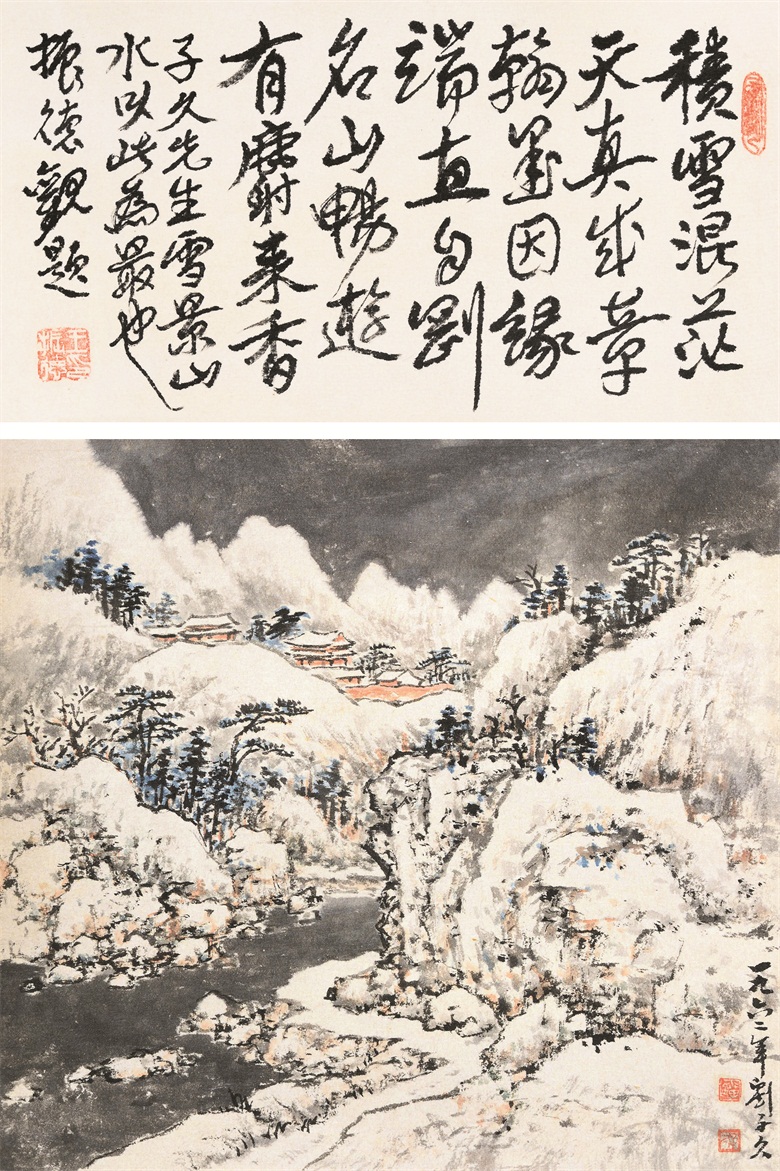 積雪混茫
天真成章
翰墨因緣
端直自剛
名山暢遊
有麝来香
子久先生雪景山
水以此為最也
振德觀題
一九六二年劉子久